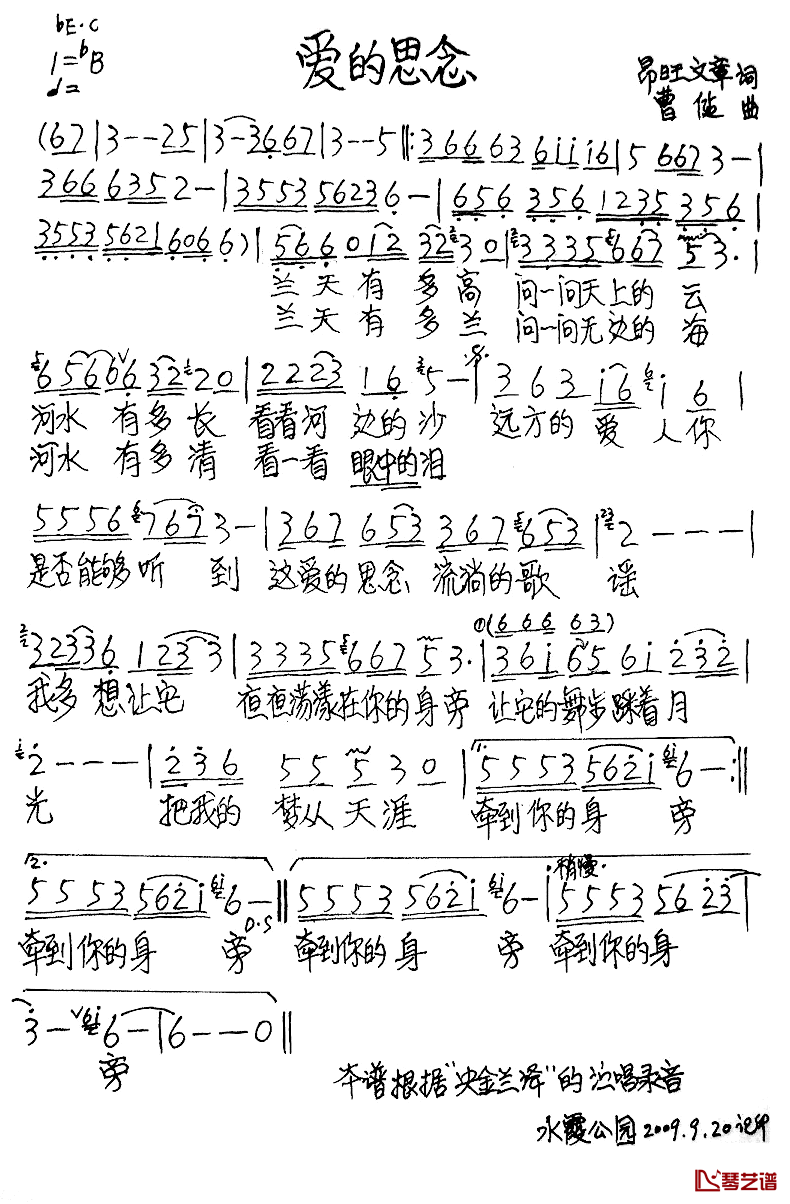 bE·C
1=bB
♩=
爱的思念
昂旺文章 词
曹 曲
(67|3--25|3-3667|3--5|:36663 6iii6|5 6673-|
3666352-|355356236-|656 356 1235 356|
355356216066)|56601232 30|333566753·|
兰天有多高 问一问天上的云
兰天有多兰 问一问无边的海
6566632 20|2223 16 5-|363 i6 i6|
河水有多长 看看河边的沙 远方的爱人你
河水有多清 看一看眼中的泪
55567673-|367653 367 653|2---|
是否能够听到 这爱的思念 流淌的歌谣
①(666 63)
32336 1233|3335667 53·|36i65 6i232|
我多想让它 夜夜荡漾在你的身旁 让它的舞步踩着月
2---|236 55 530|1. 5553562i6-:||
光 把我的梦从天涯 牵到你的身旁
2. 5553562i6-||5553562i6-|稍慢 55535623|
D.S
牵到你的身旁 牵到你的身旁 牵到你的身
3-6-|6--0||
旁
本谱根据"央金兰泽"的演唱录音
水霞公园2009.9.20记印
琴艺谱